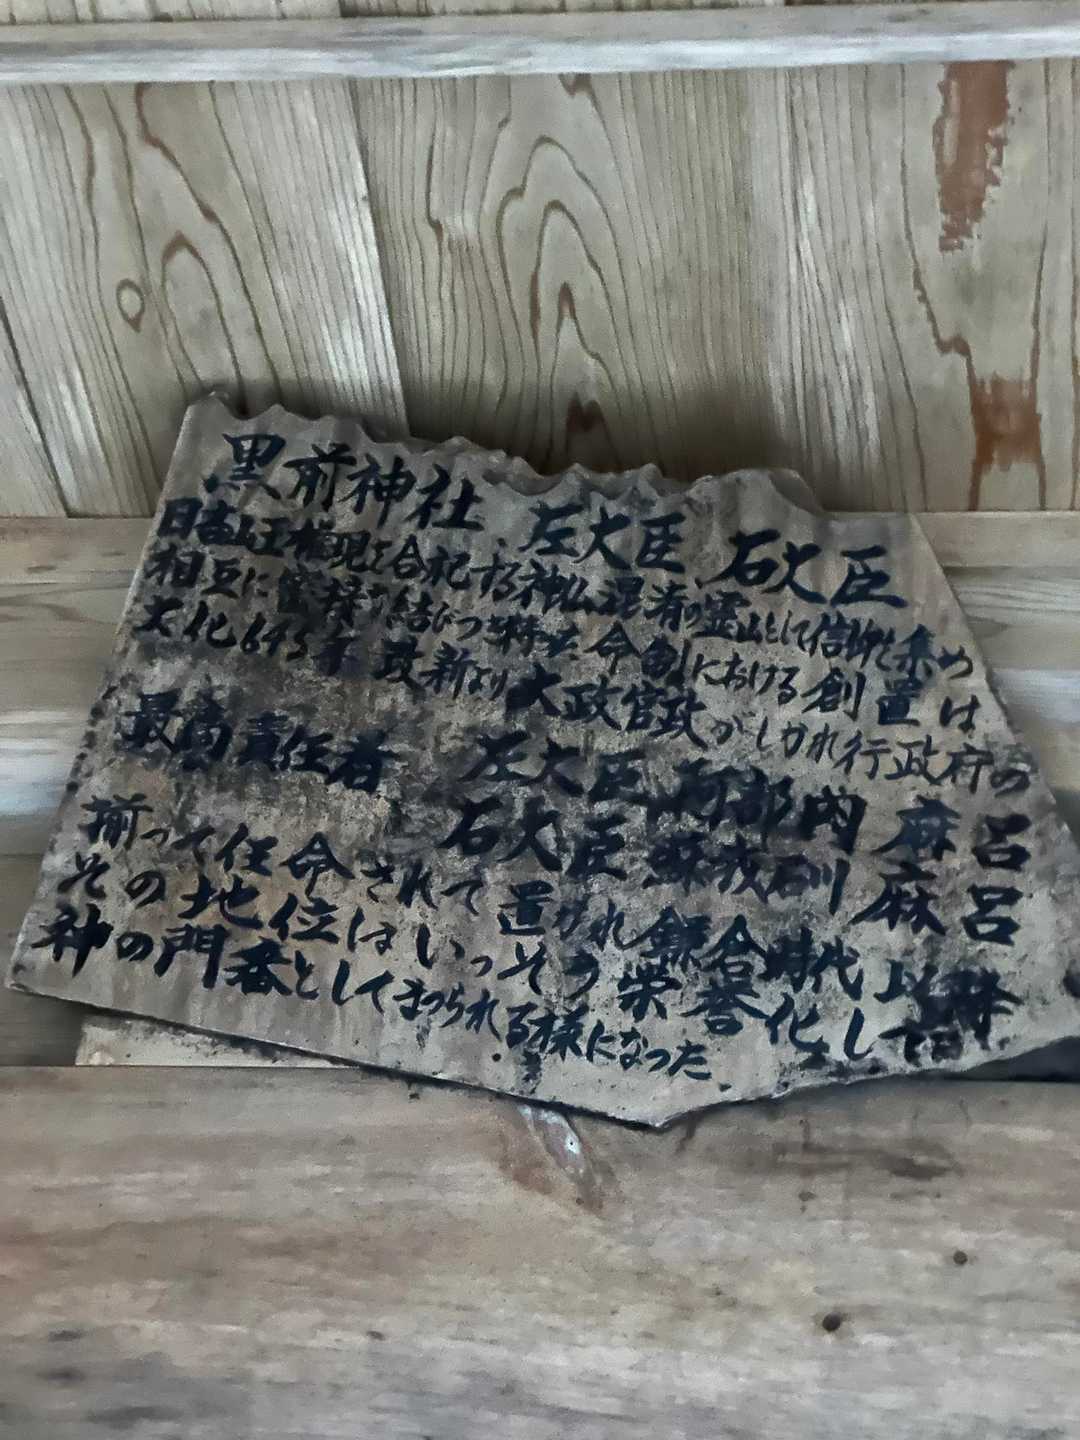 黒前神社 左大臣 右大臣
日吉山王権現を合祀する神仏混淆の霊山として信仰を集め
相互に密接な結びつき 命 における創置は
大化645年 改新より大政官政がしかれ行政府の
最高責任者 左大臣 阿部内麻呂
石大臣 蘇我石川麻呂
揃って任命されて置かれ鎌倉時代以降
その地位はいっそう栄誉化して
神の門番としてまつられる様になった.